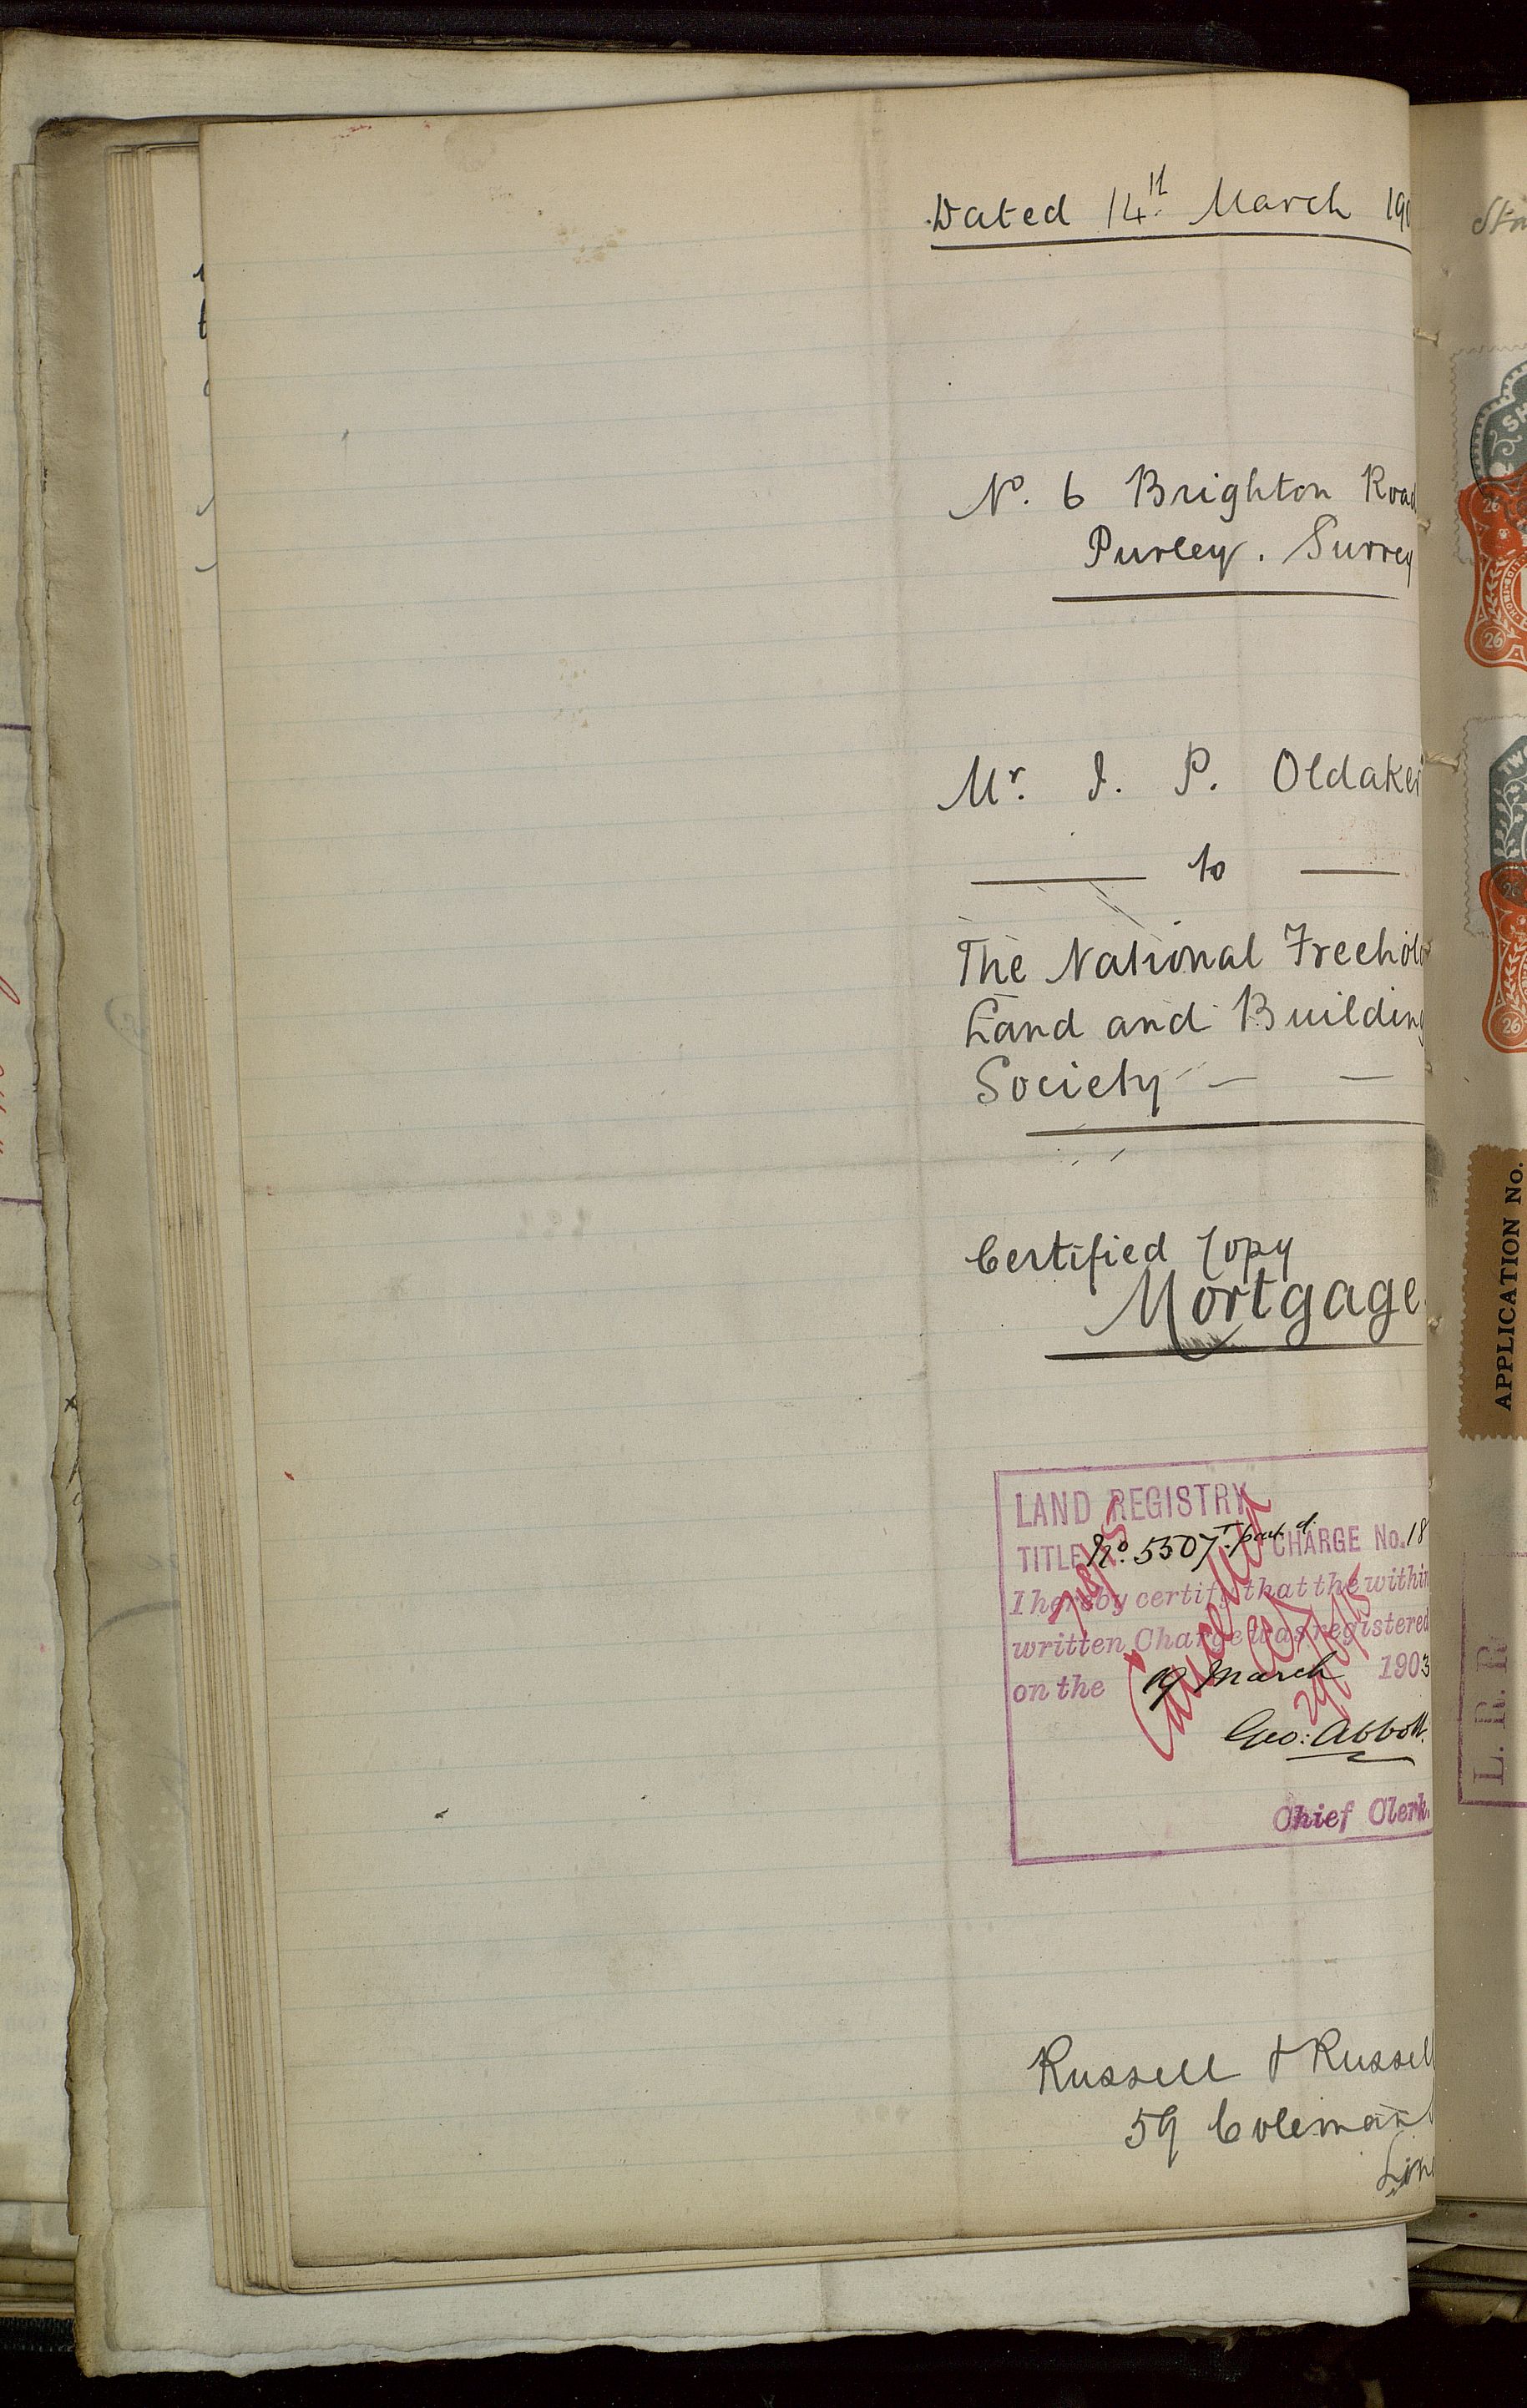 Dated 14th March 190
No. 6 Brighton Road
Purley. Surrey
Mr. J. P. Oldaker
to
The National Freehold
Land and Building
Society
Certified Copy
Mortgage
LAND REGISTRY
TITLE No. 5507 part d. CHARGE No. 18
I hereby certify that the within
written Charge was registered
on the 19 March 1903
Geo: Abbott.
Chief Clerk.
Cancelled
Russell & Russell
59 Coleman
Lon
Sta
SH
26
26
TWO
26
26
APPLICATION No.
L. R. R